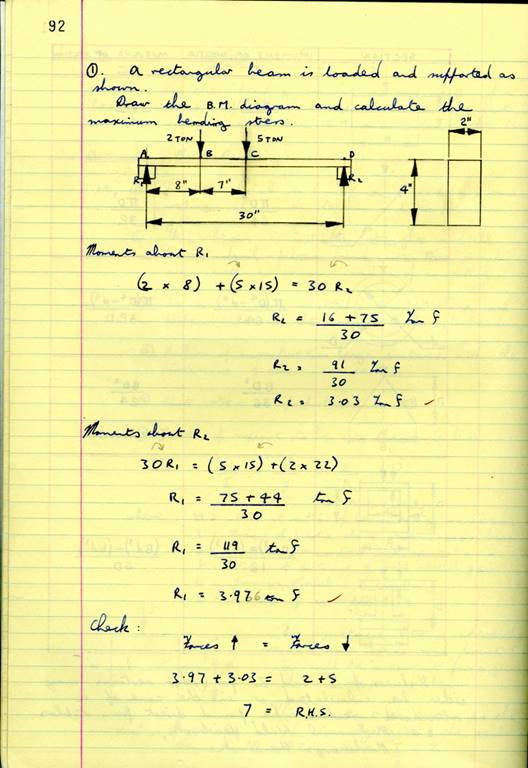 92
①. A rectangular beam is loaded and supported as
shown.
Draw the B.M. diagram and calculate the
maximum bending stress.
2 TON 5 TON 2"
A B C D
R1 8" 7" R2 4"
30"
Moments about R1
(2 x 8) + (5 x 15) = 30 R2
R2 = 16 + 75 / 30 Ton f
R2 = 91 / 30 Ton f
R2 = 3.03 Ton f ✓
Moments about R2
30R1 = (5 x 15) + (2 x 22)
R1 = 75 + 44 / 30 ton f
R1 = 119 / 30 ton f
R1 = 3.966 ton f ✓
Check :
Forces ↑ = Forces ↓
3.97 + 3.03 = 2 + 5
7 = R.H.S.